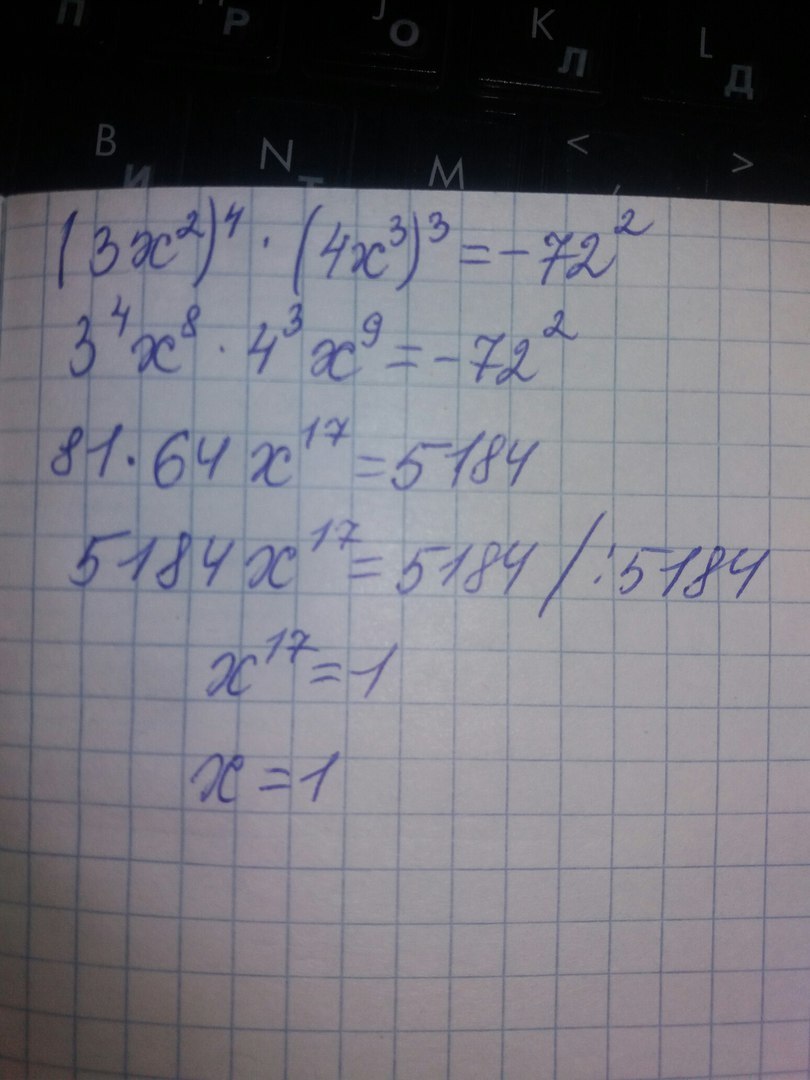 П Р J О K Л L Д
B И N Т M < >
(3x²)⁴ · (4x³)³ = -72²
3⁴x⁸ · 4³x⁹ = -72²
81 · 64 x¹⁷ = 5184
5184 x¹⁷ = 5184 / : 5184
x¹⁷ = 1
x = 1